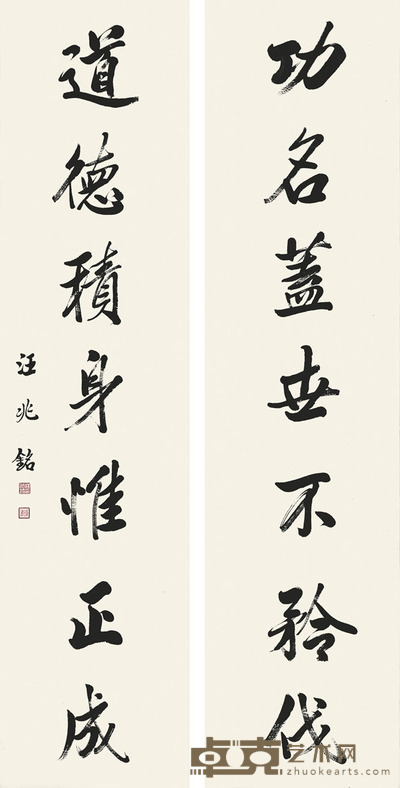 功名蓋世不矜伐
道德積身惟正成
汪兆銘
卓克艺术网
zhuokearts.com